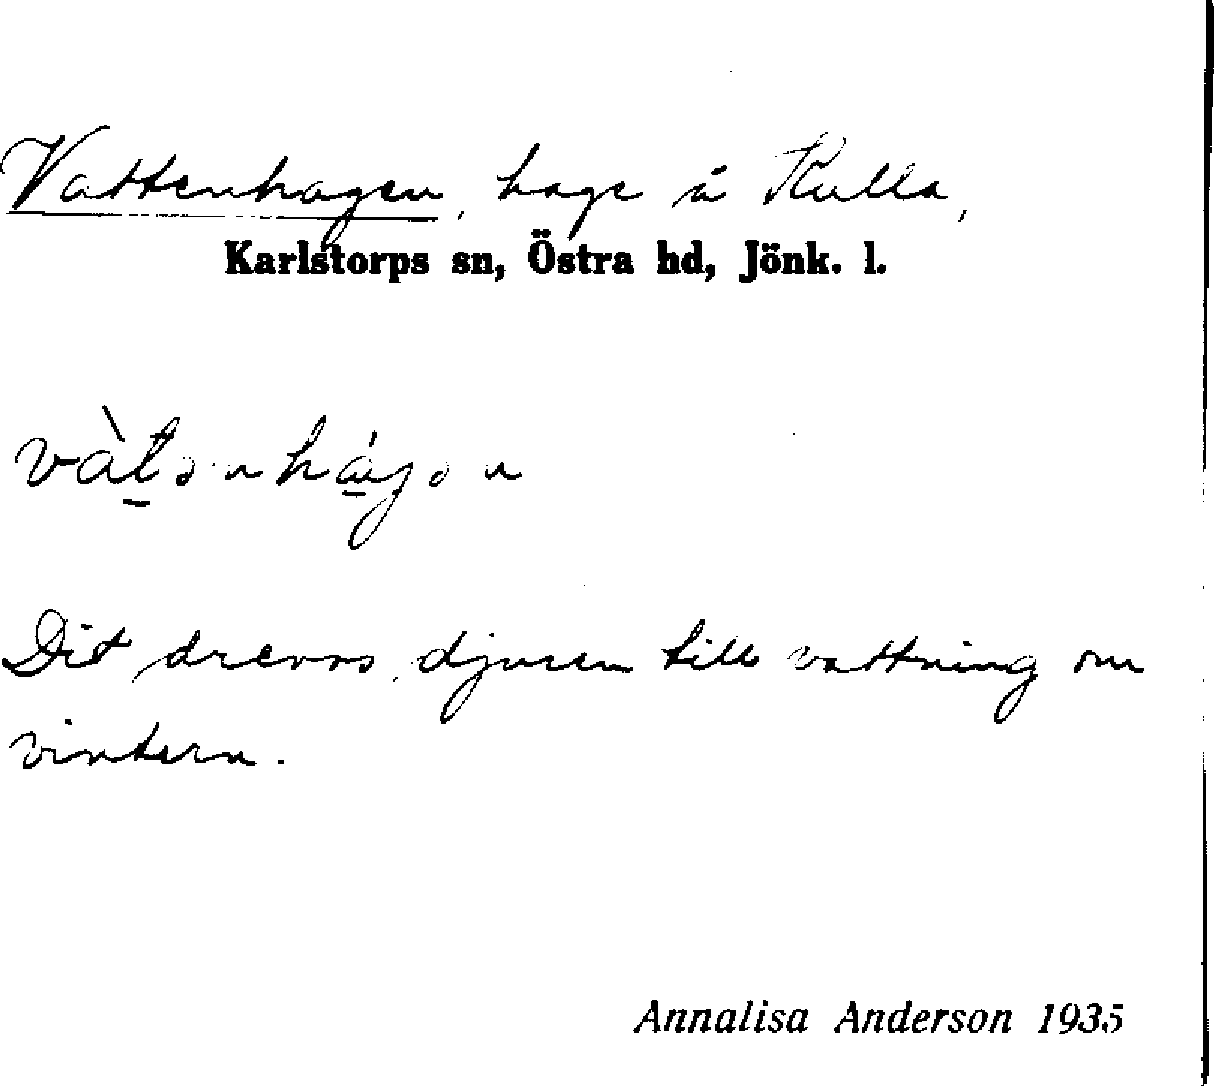 Vattenhagen, hage å Kulla,
Karlstorps sn, Östra hd, Jönk. l.
vàt̲ənhág̲ən
Dit drevos djuren till vattning om
vintern.
Annalisa Anderson 1935